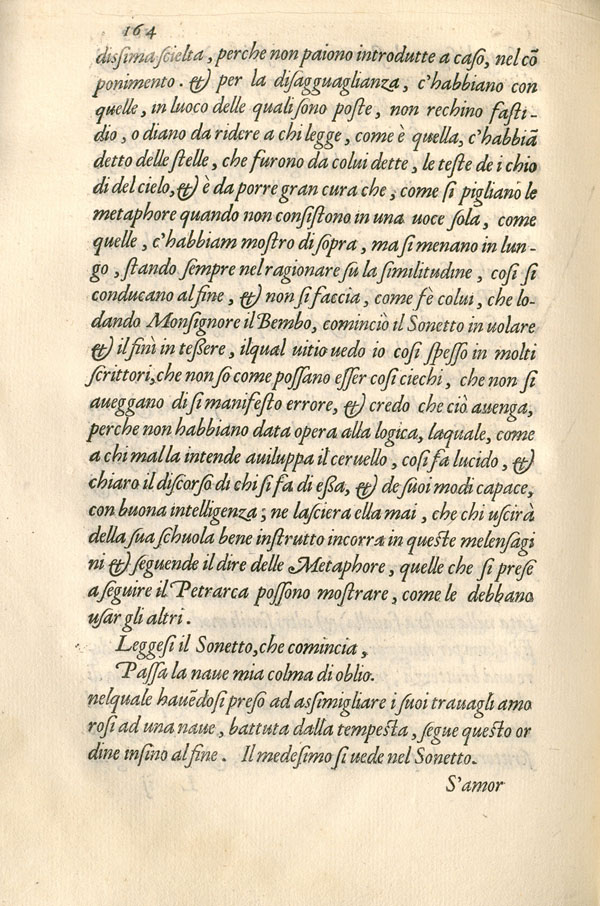 164
dissima scielta, perche non paiono introdutte a caso, nel cõ
ponimento. & per la disagguaglianza, c'habbiano con
quelle, in luoco delle quali sono poste, non rechino fasti-
dio, o diano da ridere a chi legge, come è quella, c'habbiã
detto delle stelle, che furono da colui dette, le teste de i chio
di del cielo, & è da porre gran cura che, come si pigliano le
metaphore quando non consistono in una uoce sola, come
quelle, c'habbiam mostro di sopra, ma si menano in lun-
go, stando sempre nel ragionare sù la similitudine, cosi si
conducano al fine, & non si faccia, come fè colui, che lo-
dando Monsignore il Bembo, cominciò il Sonetto in uolare
& il finì in tessere, ilqual uitio uedo io cosi spesso in molti
scrittori, che non so come possano esser cosi ciechi, che non si
aueggano di si manifesto errore, & credo che ciò auenga,
perche non habbiano data opera alla logica, laquale, come
a chi mal la intende auiluppa il ceruello, cosi fa lucido, &
chiaro il discorso di chi si fa di essa, & de suoi modi capace,
con buona intelligenza; ne lasciera ella mai, che chi uscirà
della sua schuola bene instrutto incorra in queste melensagi
ni & seguende il dire delle Metaphore, quelle che si prese
a seguire il Petrarca possono mostrare, come le debbano
usar gli altri.
Leggesi il Sonetto, che comincia,
Passa la naue mia colma di oblio.
nelquale hauẽdosi preso ad assimigliare i suoi trauagli amo
rosi ad una naue, battuta dalla tempesta, segue questo or
dine insino al fine. Il medesimo si uede nel Sonetto.
S'amor